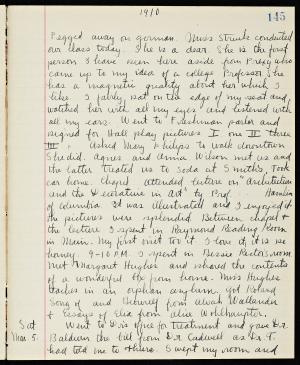 1910
145
Pegged away on German. Miss Struck conducted
our class today. She is a dear. She is the first
person I have seen here aside from Prexy who
came up to my idea of a college Professor. She
has a magnetic quality about her which I
like. I fairly sat on the edge of my seat and
watched her with all my eyes and listened with
all my ears. Went to Freshman parlor and
signed for Hall play pictures I one II three
III. Asked Mary Philips to walk downtown
She did. Agnes and Anna Wilson met us and
the latter treated us to soda at Smith's. Took
car home. Chapel. Attended lecture on "Architecture
and the Literature in Art" by Prof. Hamlin
of Columbia. It was illustrated and I enjoyed it
The pictures were splendid. Between chapel &
the lecture I spent in Raymond Reading Room
in Main. My first visit to it. I love it, it is so
homey. 9-10 P.M. I spent in Bessie Rector's room
met Margaret Hughes and shared the contents
of a wonderful box from home. Miss Hughes
teaches in an orphan asylum. Got Roland
Song of and from Alvah Wallandin
& Essays of Elia from Alice
Sat
Mar. 5.
Went to Dr's office for treatment and gave Dr.
Baldwin the bill from Dr Cadwell as Dr. T.
had told me to there. Swept my room and